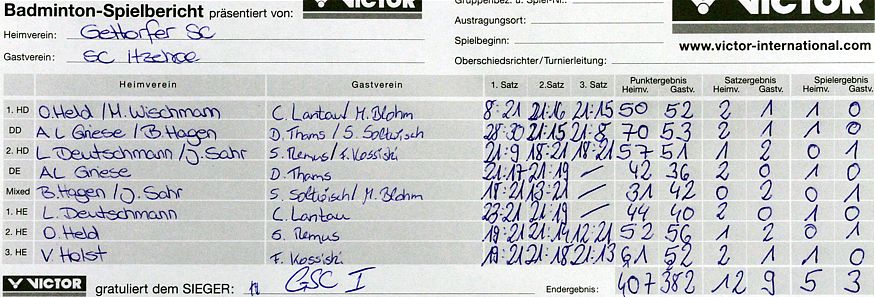 VICTOR
Badminton-Spielbericht präsentiert von:
Gruppenbez. u. Spiel-Nr.:
VICTOR
Heimverein: Gettorfer SC
Austragungsort:
Gastverein: SC Itzehoe
Spielbeginn:
Oberschiedsrichter/Turnierleitung:
www.victor-international.com
Heimverein Gastverein 1. Satz 2. Satz 3. Satz Punktergebnis Heimv. Gastv. Satzergebnis Heimv. Gastv. Spielergebnis Heimv. Gastv.
1. HD O. Held / M. Wischmann C. Lantau / M. Blohm 8:21 21:16 21:15 50 52 2 1 1 0
DD A L Griese / B. Hagen D. Thams / S. Soltwisch 28:30 21:15 21:8 70 53 2 1 1 0
2. HD L. Deutschmann / J. Sahr S. Remus / F. Kossiski 21:9 18:21 18:21 57 51 1 2 0 1
DE AL Griese D. Thams 21:17 21:19 / 42 36 2 0 1 0
Mixed B. Hagen / J. Sahr S. Soltwisch / M. Blohm 18:21 13:21 / 31 42 0 2 0 1
1. HE L. Deutschmann C. Lantau 23:21 21:19 / 44 40 2 0 1 0
2. HE O. Held S. Remus 19:21 21:14 12:21 52 56 1 2 0 1
3. HE V. Holst F. Kossiski 19:21 21:18 21:13 61 52 2 1 1 0
VICTOR gratuliert dem SIEGER: GSC I Endergebnis: 407 382 12 9 5 3